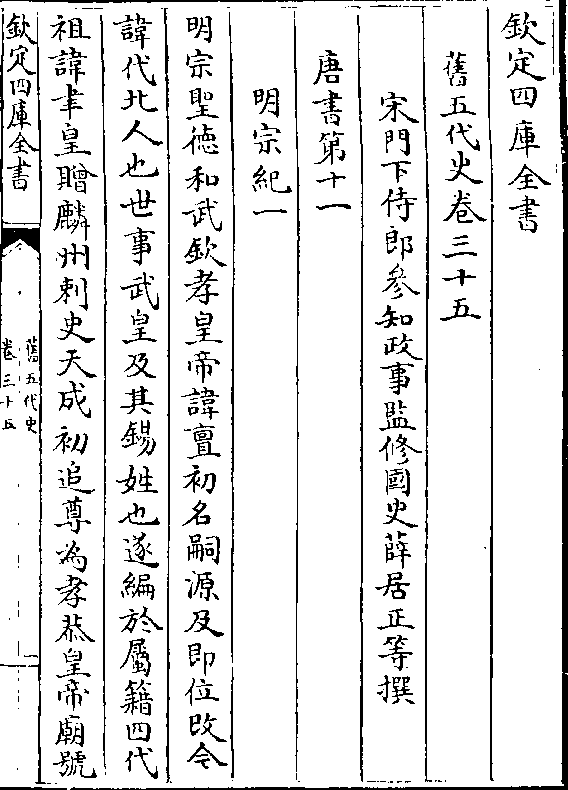 欽定四庫全書
舊五代史卷三十五
宋門下侍郎參知政事監修國史薛居正等撰
唐書第十一
明宗紀一
明宗聖德和武欽孝皇帝諱亶初名嗣源及即位改今
諱代北人也世事武皇及其錫姓也遂編於屬籍四代
祖諱聿皇贈麟州刺史天成初追尊為孝恭皇帝廟號
欽定四庫全書
舊五代史
卷三十五
一